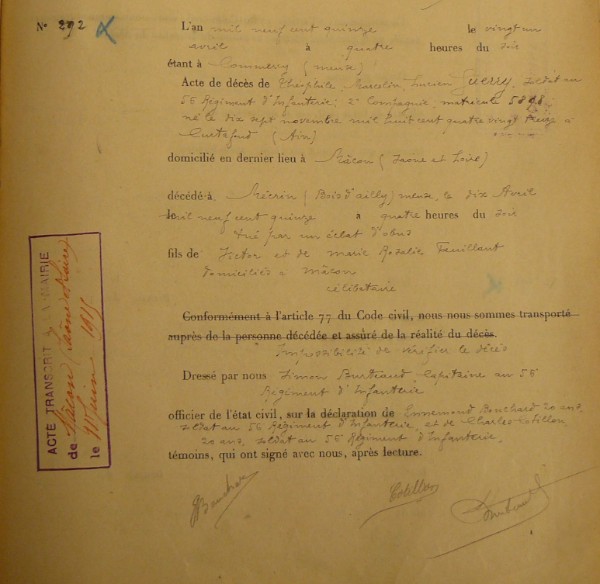 N° 292
L'an mil neuf cent quinze le vingt un
avril à quatre heures du soir
étant à Commercy (meuse)
Acte de décès de Théophile Marcelin Lucien Guerry, soldat au
56 Régiment d'Infanterie, 2e Compagnie, matricule
né le dix sept novembre mil huit cent quatre vingt treize à
Curtafond (Ain)
domicilié en dernier lieu à Mâcon (Saone et Loire)
décédé à Mécrin (Bois d'ailly) meuse, le dix Avril
mil neuf cent quinze à quatre heures du soir
tué par un éclat d'obus
fils de Victor et de marie Rozalie Feuillant
domiciliés à mâcon
célibataire
Conformément à l'article 77 du Code civil, nous nous sommes transporté
auprès de la personne décédée et assuré de la réalité du décès.
Impossibilité de vérifier le décès
Dressé par nous Simon Capitaine au 56
Régiment d'Infanterie
officier de l'état civil, sur la déclaration de Ennemond Bouchard 20 ans,
soldat au 56 Régiment d'Infanterie, et de Charles Cotillon
20 ans, soldat au 56 Régiment d'Infanterie,
témoins, qui ont signé avec nous, après lecture.
Bouchard Cotillon
ACTE TRANSCRIT A LA MAIRIE
de Mâcon Saône et Loire
le Juin 1915